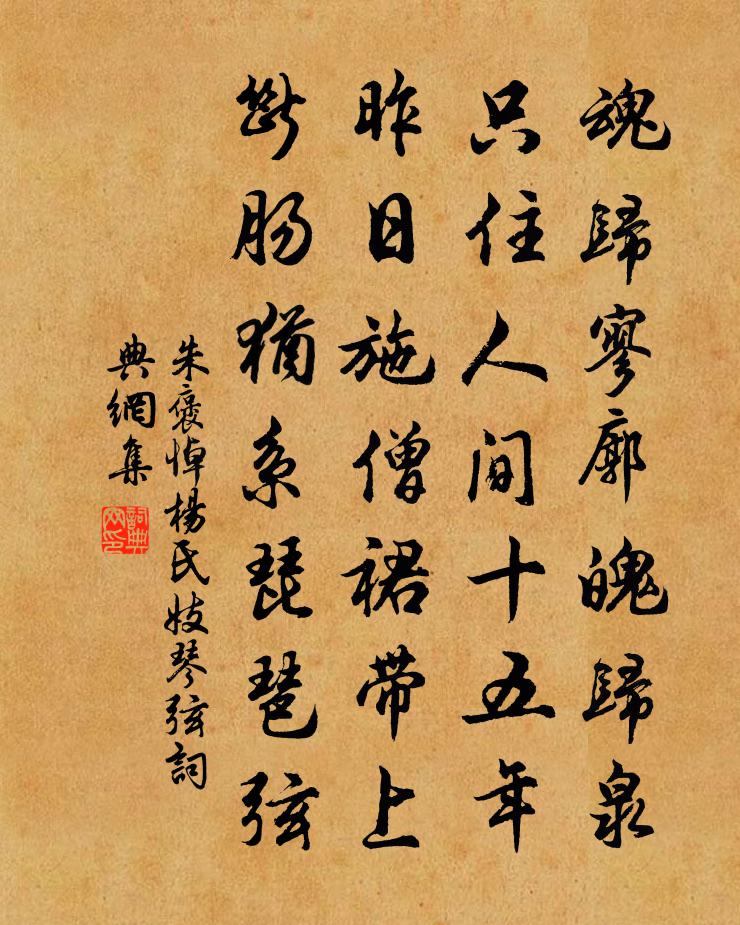 魂歸寥廓魄歸泉
只住人間十五年
昨日施僧裙帶上
斷腸猶系琵琶弦
朱褒悼楊氏妓琴弦詞
典網集
詞典網印